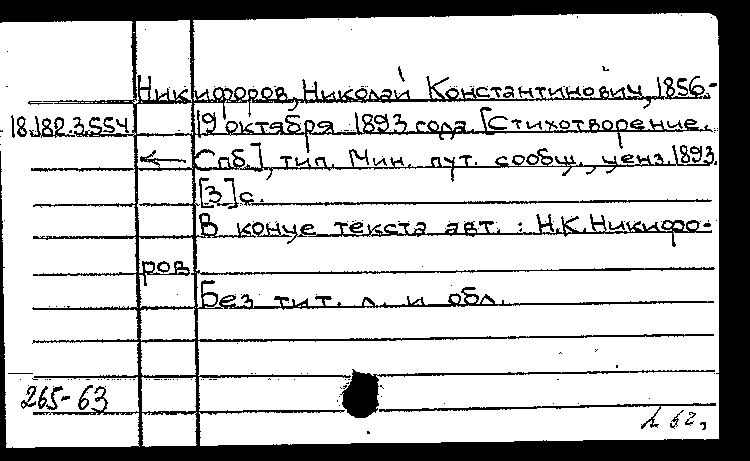 Никифоров, Николай Константинович, 1856.-
18.182.3.554 19 октября 1893 года. [Стихотворение.
← Спб.], тип. Мин. пут. сообщ., ценз. 1893.
[3] с.
В конце текста авт. : Н.К. Никифо-
ров
Без тит. л. и обл.
265-63